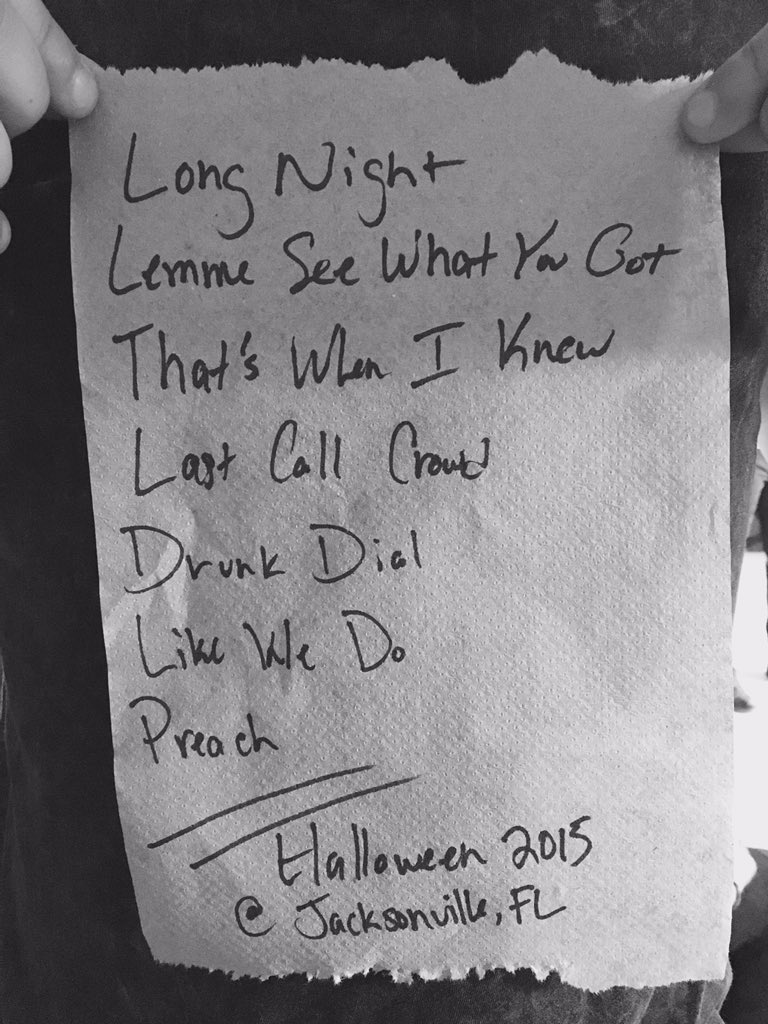 Long Night
Lemme See What You Got
That's When I Knew
Last Call Crowd
Drunk Dial
Like We Do
Preach
Halloween 2015
@ Jacksonville, FL